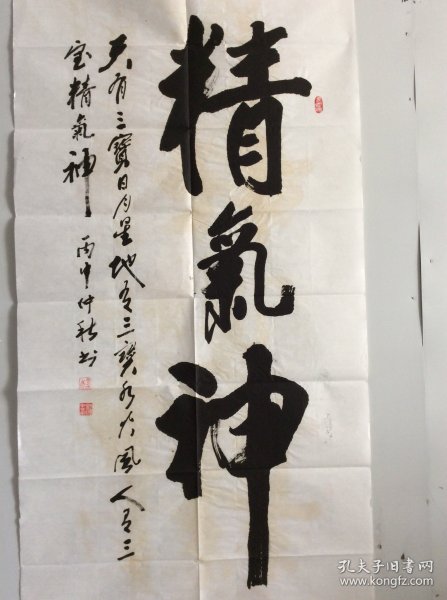 精氣神
天有三寶日月星地有三寶水火風人有三
宝精氣神 丙申仲秋书
孔夫子旧书网
www.kongfz.com